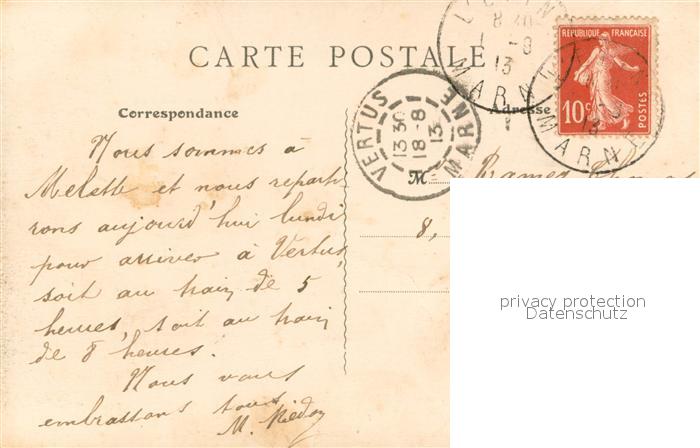 CARTE POSTALE
RÉPUBLIQUE FRANÇAISE
10c
POSTES
MARNE
13
MARNE
VERTUS
13 30
18-8
13
MARNE
Correspondance
Adresse
M
8,
Nous sommes à
et nous reparti-
rons aujourd'hui lundi
pour arriver à Vertus,
soit au train de 5
heures, soit au train
de 8 heures.
Nous vous
embrassons tous
M.
privacy protection
Datenschutz